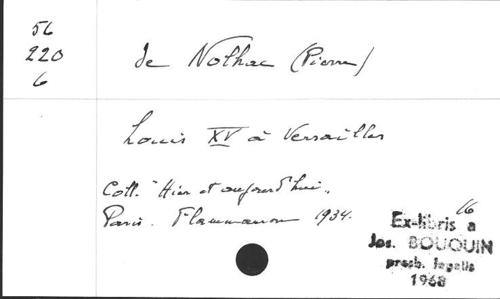 56
220
6
de Nolhac (Pierre)
Louis XV à Versailles
Coll. "Hier et aujourd'hui"
Paris. Flammarion 1934.
16
Ex-libris a
Jos. BOUQUIN
presb.
1968